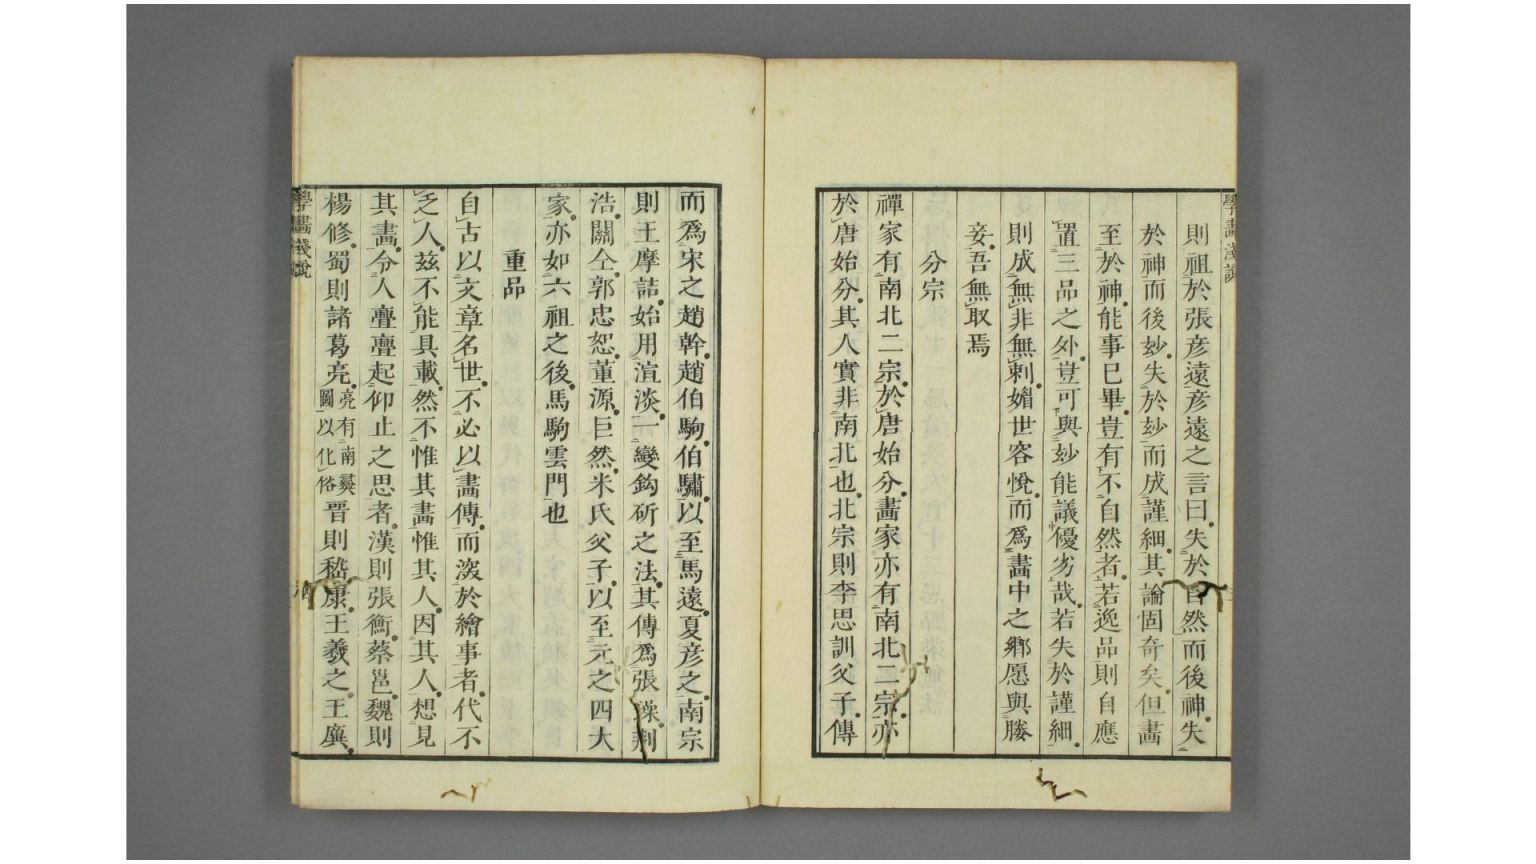 學畫淺說
則祖於張彦遠彦遠之言曰失於自然而後神失
於神而後妙失於妙而成謹細其論固奇矣但畫
至於神能事已畢豈有不自然者若逸品則自應
置三品之外豈可與妙能議優劣哉若失於謹細
則成無非無刺媚世容悅而爲畫中之鄉愿與媵
妾吾無取焉
分宗
禪家有南北二宗於唐始分畫家亦有南北二宗亦
於唐始分其人實非南北也北宗則李思訓父子傳
而爲宋之趙幹趙伯駒伯驌以至馬遠夏彦之南宗
則王摩詰始用渲淡一變鈎斫之法其傳爲張璪荆
浩關仝郭忠恕董源巨然米氏父子以至元之四大
家亦如六祖之後馬駒雲門也
重品
自古以文章名世不必以畫傳而深於繪事者代不
乏人玆不能具載然不惟其畫惟其人因其人想見
其畫令人亹亹起仰止之思者漢則張衡蔡邕魏則
楊修蜀則諸葛亮亮有南彛圖以化俗晉則嵇康王羲之王廙
學畫淺說